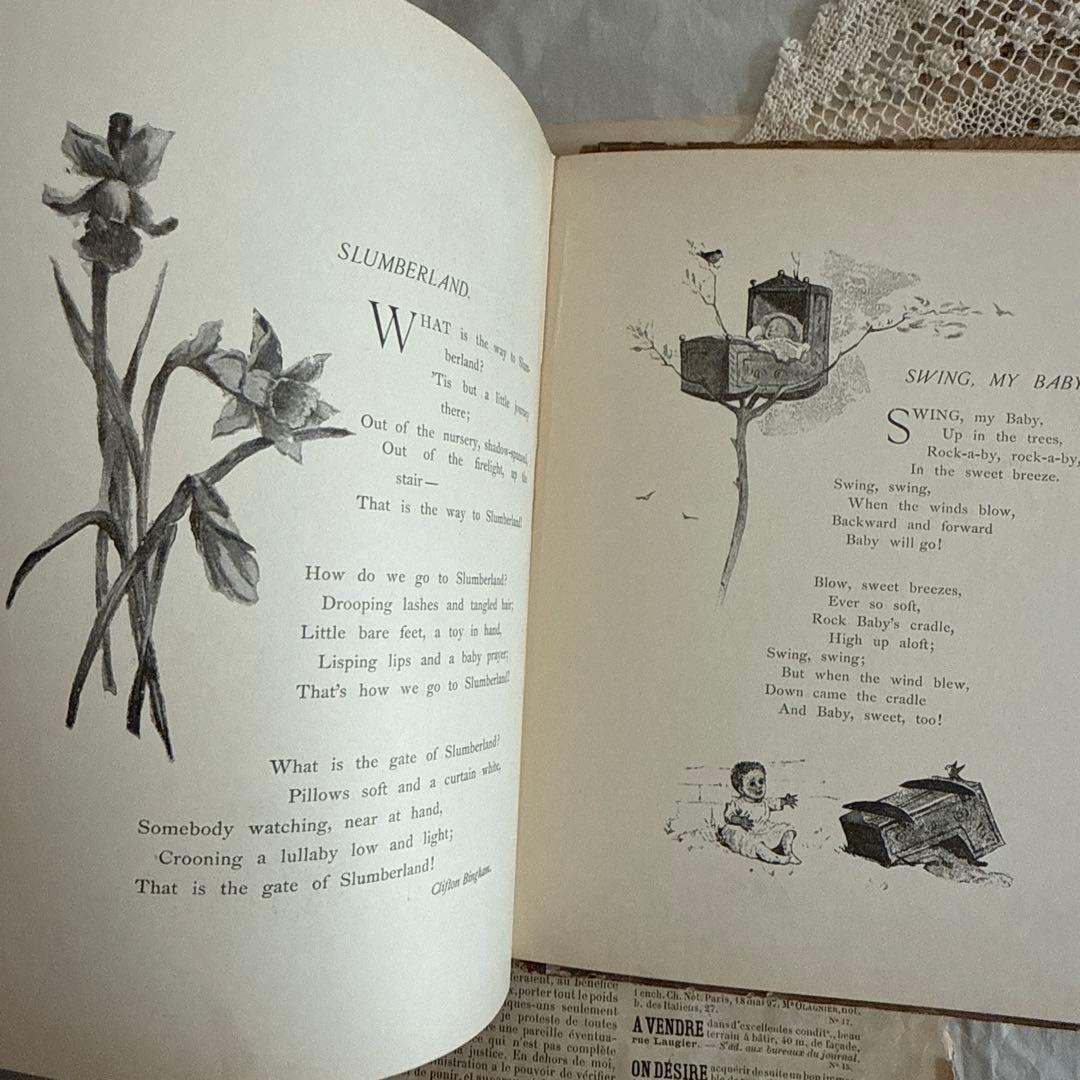 SLUMBERLAND.
WHAT is the way to Slum-
berland?
'Tis but a little journey
there;
Out of the nursery, shadow-spanned,
Out of the firelight, up the
stair—
That is the way to Slumberland!
How do we go to Slumberland?
Drooping lashes and tangled hair;
Little bare feet, a toy in hand,
Lisping lips and a baby prayer;
That's how we go to Slumberland!
What is the gate of Slumberland?
Pillows soft and a curtain white,
Somebody watching, near at hand,
Crooning a lullaby low and light;
That is the gate of Slumberland!
Clifton Bingham.
SWING, MY BABY
SWING, my Baby,
Up in the trees,
Rock-a-by, rock-a-by,
In the sweet breeze.
Swing, swing,
When the winds blow,
Backward and forward
Baby will go!
Blow, sweet breezes,
Ever so soft,
Rock Baby's cradle,
High up aloft;
Swing, swing;
But when the wind blew,
Down came the cradle
And Baby, sweet, too!
au bénéfice
porter tout le poids
ques-uns seulement
je proteste de toutes
une pareille éventua-
ce qui n'est pas complète
la justice. En dehors de moi,
nistration a le pouvoir de vérifier
de punir, et
Ch. Not. Paris, 18 mai 97. Me OLAGNIER, not.
b. des Italiens, 27.
N° 17.
A VENDRE dans d'excellentes condit., beau
terrain à bâtir, 40 m. de façade,
rue Laugier. — S'ad. aux bureaux du journal.
N° 15.
ON DÉSIRE acquérir de suite un bon